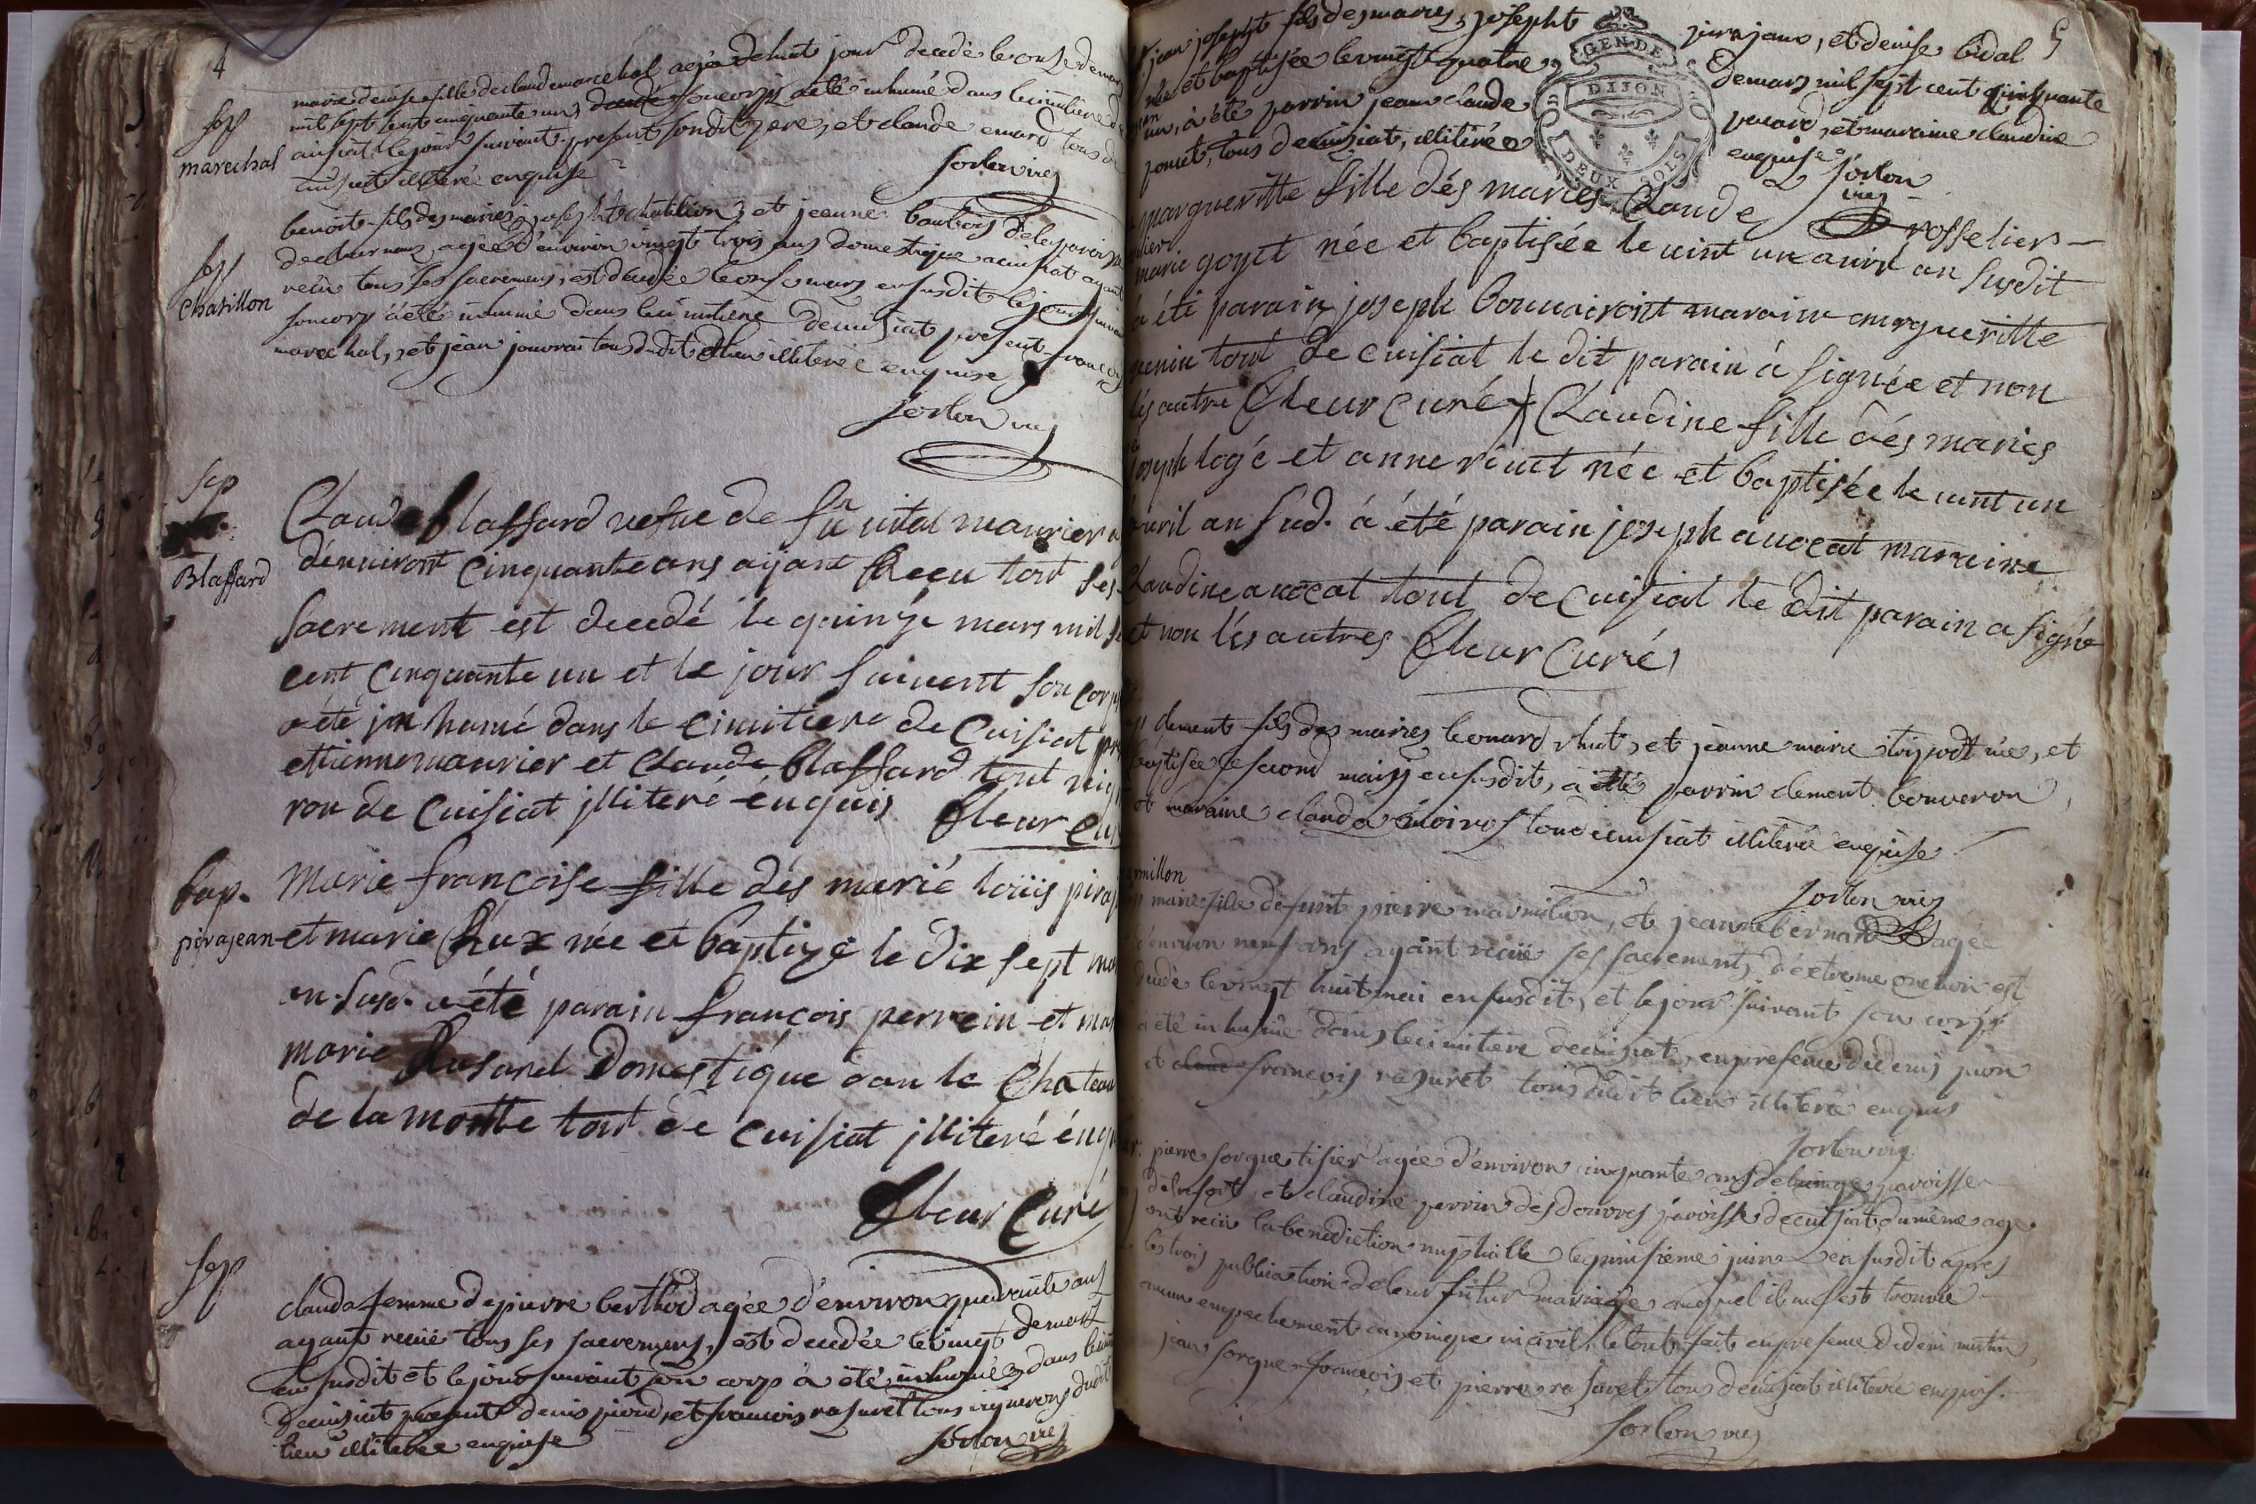 4
marie denise fille de claude marechal agée de huit jour decedé le onze de mars
mil sept cent cinquante un, son corps a été inhumé dans le cimitiere de
sep
marechal
cuisiat le jour suivant present son dit pere, et claude emard tous de
cuisiat illiteré enquise
sorlon vic
benoite fils des maries joseph chatillion, et jeanne bonbois de la paroisse
de charnaux agée d'environ vingt trois ans domestique a cuisiat ayant
sep
chatillon
reçu tous ses sacremens, est decedée le onse mars en susdit le jour suivant
son corp a été inhumé dans le cimitiere de cuisiat present françois
marechal, et jean jouvrai tous dudit lieu illiterée enquise
sorlon vic
sep
Blaffard
Claude blaffard vefve de fu vital maurier
d'environt cinquante ans ayant Reçu tout ses
sacrement est decedé le quinze mars mil se
cent cinquante un et le jour suivent son corp
a été in humé dans le cimitiere de Cuisiat pre
ettienne maurier et claude blaffard tout vign
ron de Cuisiat illiteré enquis Fleur Cu
bap.
pirajean
Marie françoise fille dés marié loüis piraj
et marie Roux née et baptizé le dix sept mar
an. susd. a été parain françois perrein et mar
marie Rusand Domestique dan le Chateau
de la motte tout de cuisiat illiteré énqu
Fleur Curé
sep
clauda femme de pierre berthod agée d'environ quarante ans
ayant reçue tous ses sacremens, est decedée le vingt de mars
en susdit et le jour suivant son corp a été inhumé dans le cim
de cuisiat present denis piond, et francois rasuret tous vignerons dudit
lieu illiterée enquise
sorlon vic
5
jean joseph fils des maries, joseph pirajean, et denise bidal
née et baptisée le vingt quatre de mars mil sept cent cinquante
un, a été parrin jean claude pacard, et maraine claudine
ponet, tous de cuisiat, illiterée enquise
sorlon
vic
GEN DE
DIJON
DEUX SOLS
margueritte fille dés maries Claude rosselier
marie goyet née et baptisée le vint un avril an susdit
a été parain joseph bonnairont maraine marguerille
genin tout de cuisiat le dit parain á signée et non
lés autre Fleur Curé Claudine fille dés maries
joseph logé et anne vinet née et baptisée le vint un
avril an sud. á été parain joseph avocat marreine
Claudine avocat tout de Cuisiat le dit parain a signé
et non lés autres Fleur Curé
clement fils des maries leonard, et jeanne marie née, et
baptisée le second mais en susdit, a été parrin clement bonveron,
et maraine clauda tous de cuisiat illiterée enquise
sorlon vic
marie fille de funt pierre marmillon, et jeanne bernard agée
d'environ neuf ans ayant reçue ses sacrements d'extreme onction est
decedé le vingt huit mai en susdit, et le jour suivant son corps
a été inhumé dans le cimitiere de cuisiat, en presence de denis pion
et francois rasuret tous dudit lieu illiterée enquis
sorlon vic
pierre sorgue tisier agée d'environ cinquante ans de la paroisse
et claudine perrin des douvres paroisse de cuisiat du même age
ont reçu la benediction nuptialle le quinsième juin en susdit apres
les trois publication de leur futur mariage auquel il ne s'est trouvé
aucun empechement canonique ni civil, le tout fait en presence de denis
jean sorgue francois et pierre rasuret tous de cuisiat illiterée enquis.
sorlon vic